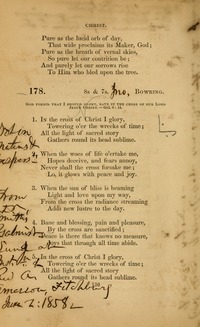 CHRIST.
Pure as the lucid orb of day,
That wide proclaims its Maker, God;
Pure as the breath of vernal skies,
So pure let our contrition be;
And purely let our sorrows rise
To Him who bled upon the tree.
178. 8s & 7s. BOWRING.
GOD FORBID THAT I SHOULD GLORY, SAVE IN THE CROSS OF OUR LORD
JESUS CHRIST.
1. In the cross of Christ I glory,
Towering o'er the wrecks of time;
All the light of sacred story
Gathers round its head sublime.
2. When the woes of life o'ertake me,
Hopes deceive, and fears annoy,
Never shall the cross forsake me:
Lo, it glows with peace and joy.
3. When the sun of bliss is beaming
Light and love upon my way,
From the cross the radiance streaming
Adds new lustre to the day.
4. Bane and blessing, pain and pleasure,
By the cross are sanctified;
Peace is there that knows no measure,
Joys that through all time abide.
In the cross of Christ I glory,
Towering o'er the wrecks of time;
All the light of sacred story
Gathers round its head sublime.
from
Sung at
Emerson, Fitchburg
June 2: 1858